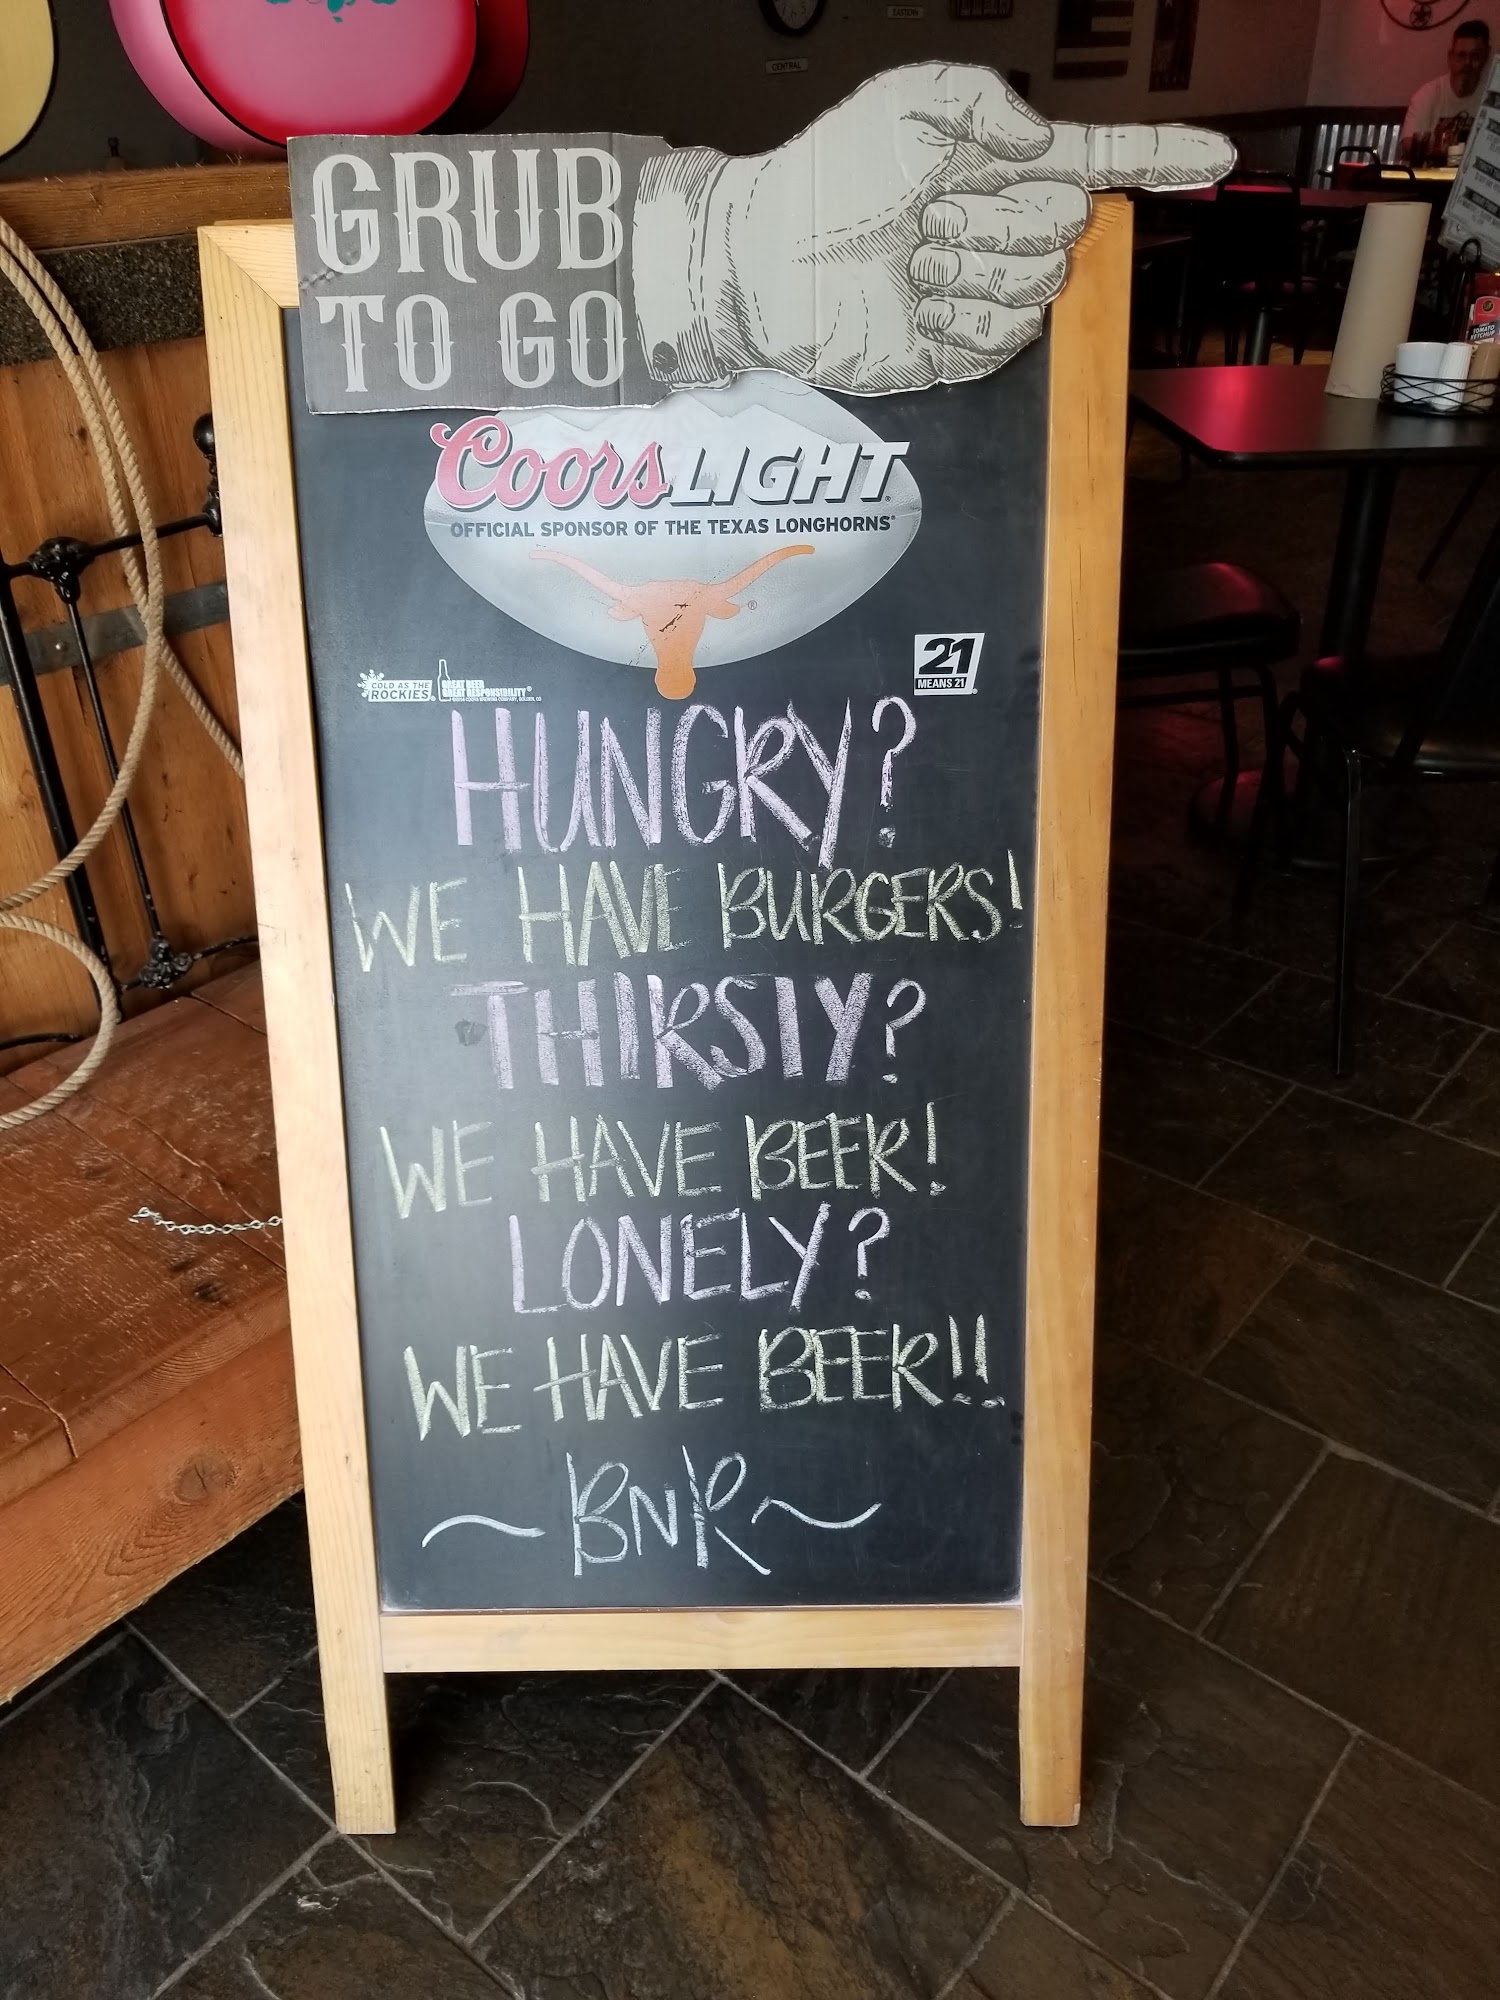 EASTERN
CENTRAL
GRUB
TO GO
Coors LIGHT
OFFICIAL SPONSOR OF THE TEXAS LONGHORNS®
®
21
MEANS 21
COLD AS THE
ROCKIES
GREAT BEER
GREAT RESPONSIBILITY®
HUNGRY?
WE HAVE BURGERS!
THIRSTY?
WE HAVE BEER!
LONELY?
WE HAVE BEER!!
~ BNR ~
TOMATO
KETCHUP